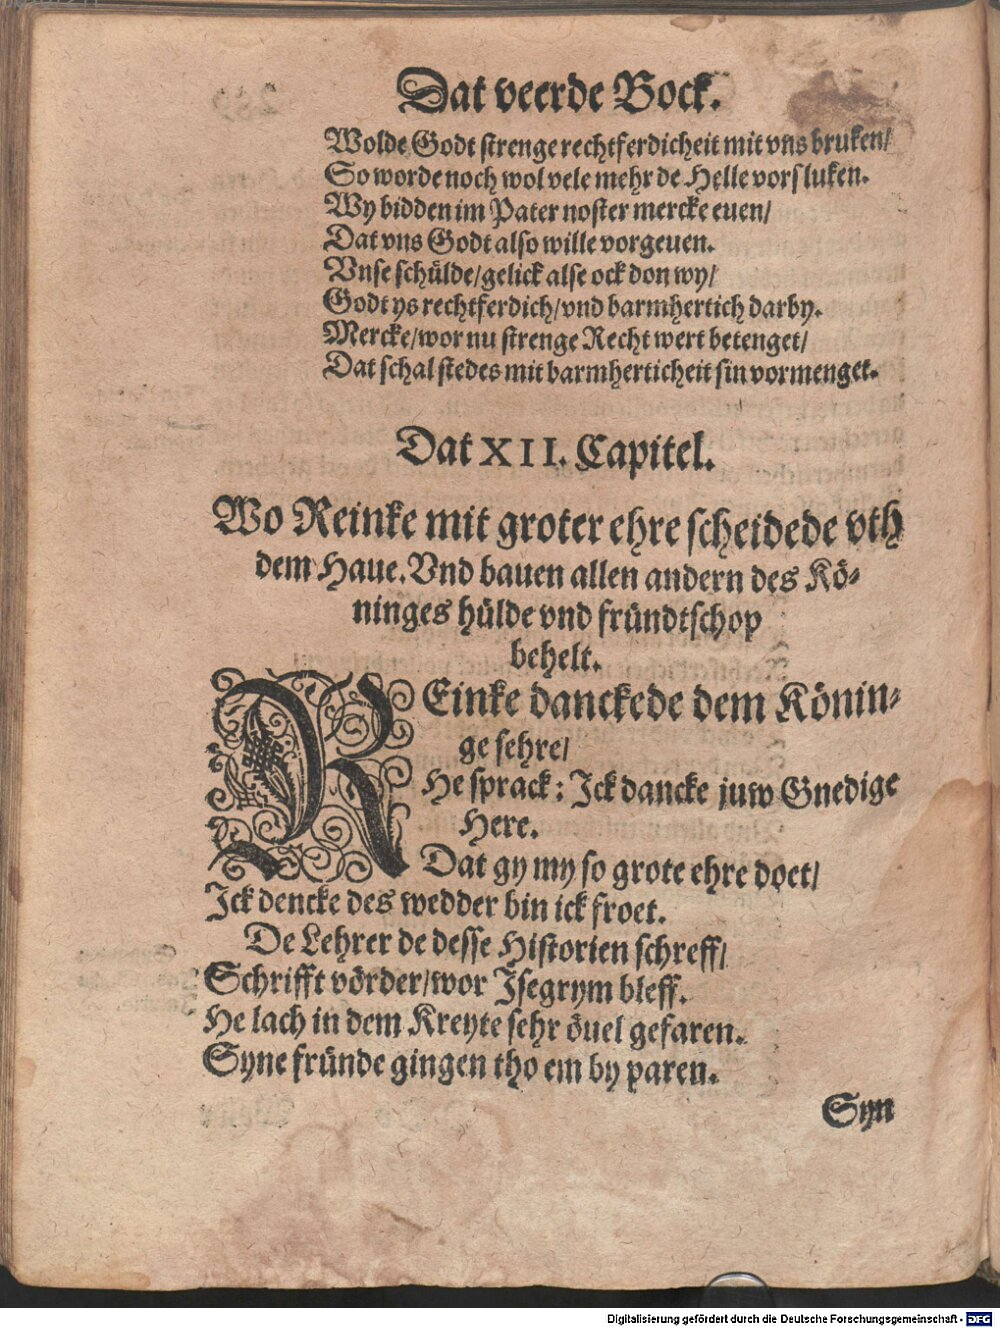 Dat veerde Bock.
Wolde Godt strenge rechtferdicheit mit vns bruken/
So worde noch wol vele mehr de Helle vorsluken.
Wy bidden im Pater noster mercke euen/
Dat vns Godt also wille vorgeuen.
Vnse schülde/gelick alse ock don wy/
Godt ys rechtferdich/vnd barmhertich darby.
Mercke/wor nu strenge Recht wert betenget/
Dat schal stedes mit barmherticheit sin vormenget.
Dat XII. Capitel.
Wo Reinke mit groter ehre scheidede vth
dem Haue. Vnd bauen allen andern des Kö-
ninges hülde vnd fründtschop
behelt.
REinke danckede dem Könin-
ge sehre/
He sprack: Ick dancke juw Gnedige
Here.
Dat gy my so grote ehre doet/
Ick dencke des wedder bin ick froet.
De Lehrer de desse Historien schreff/
Schrifft vörder/wor Isegrym bleff.
He lach in dem Kreyte sehr öuel gefaren.
Syne fründe gingen tho em by paren.
Syn
Digitalisierung gefördert durch die Deutsche Forschungsgemeinschaft - DFG